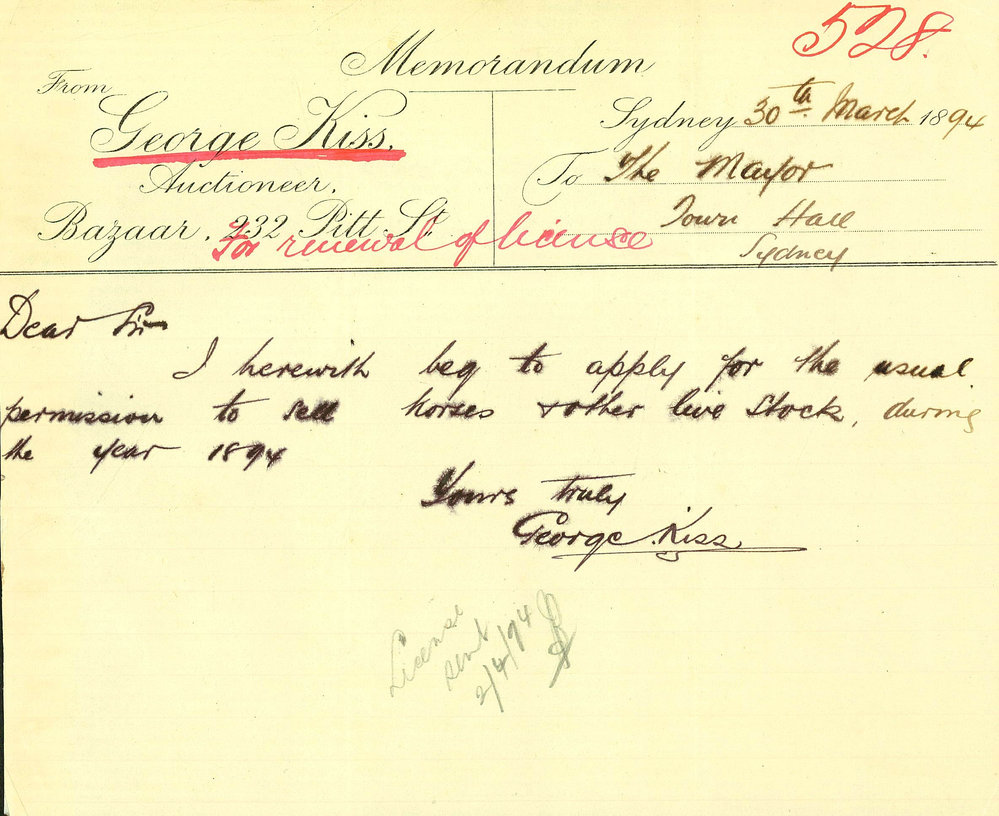 528.
Memorandum
From
George Kiss.
Auctioneer,
Bazaar, 232 Pitt St
For renewal of license
Sydney 30th March 1894
To The Mayor
Town Hall
Sydney
Dear Sir
I herewith beg to apply for the usual
permission to sell horses & other live stock, during
the year 1894
Yours truly
George Kiss
License
sent
2/4/94